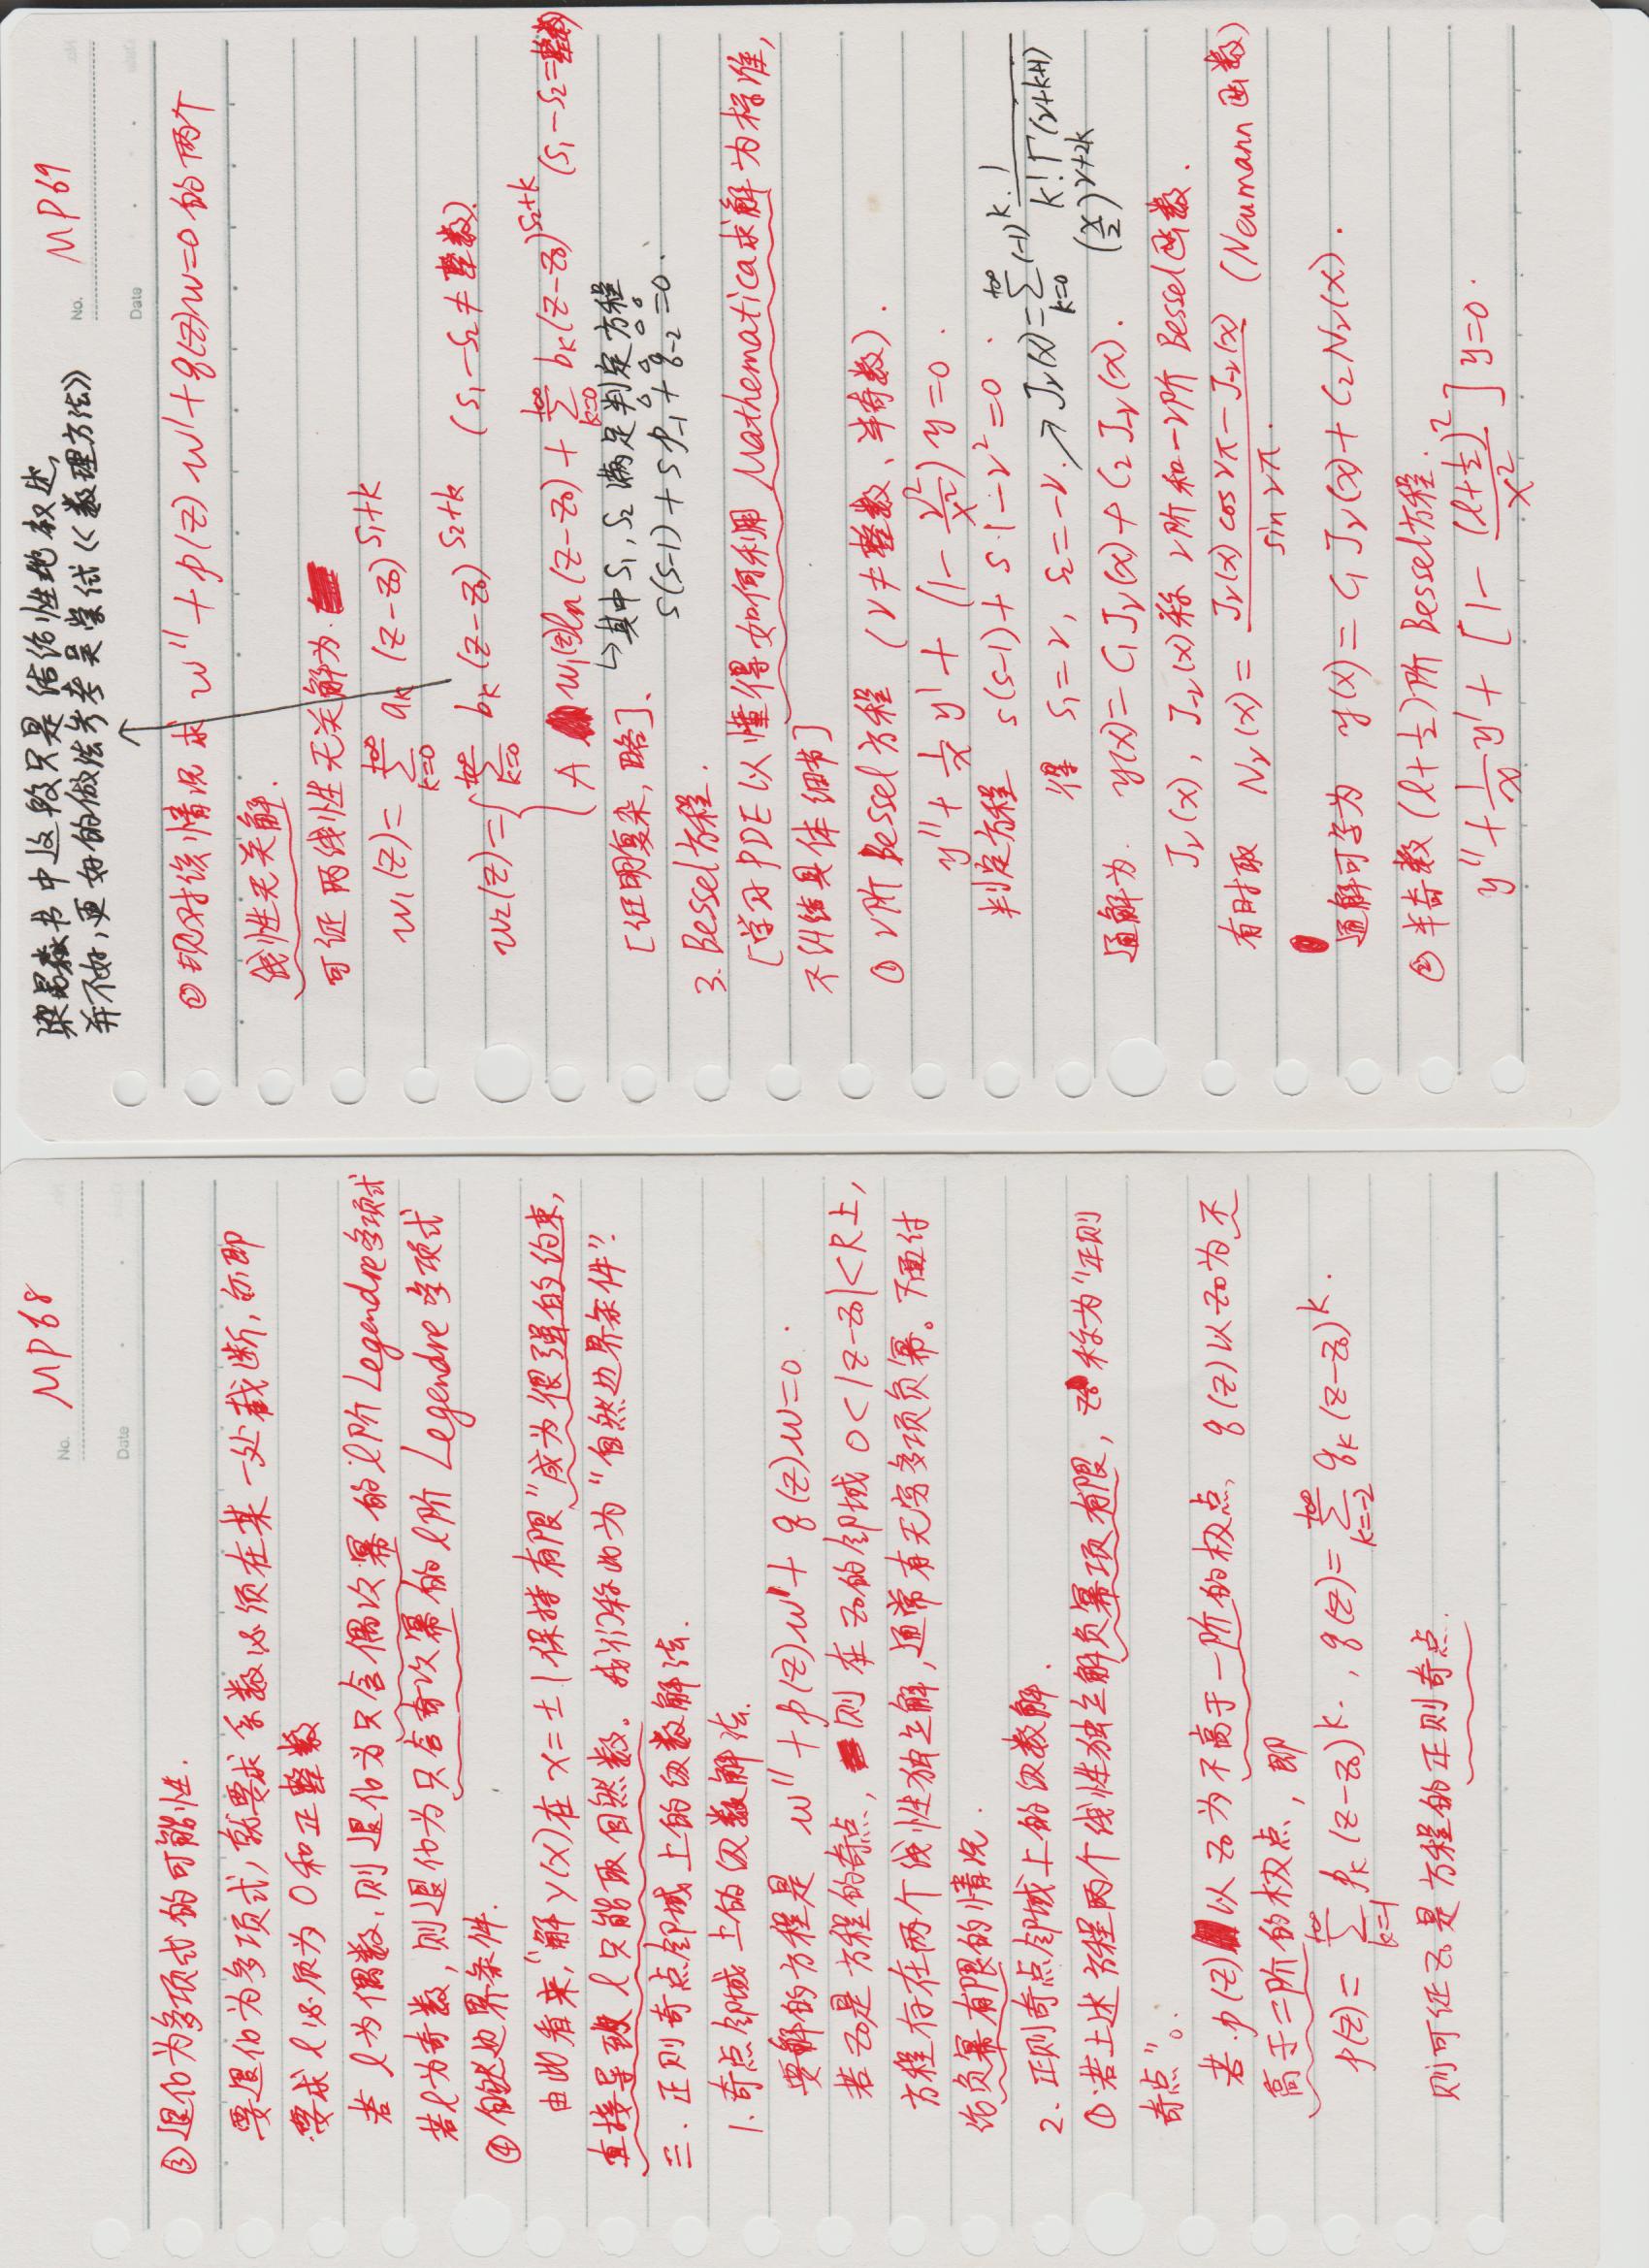 No. MP68
Date
③退化为多项式的可能性.
要退化为多项式,就要求系数必须在某一处截断,亦即
要求l必须为0和正整数
若l为偶数,则退化为只含偶次幂的l阶Legendre多项式
若l为奇数,则退化为只含奇次幂的l阶Legendre多项式
④自然边界条件.
由此看来,"解y(x)在x=±1保持有限"成为很强的约束,
直接导致l只能取自然数。我们称此为"自然边界条件".
三.正则奇点邻域上的级数解法.
1.奇点邻域上的级数解法.
要解的方程是 w''+p(z)w'+q(z)w=0.
若z₀是方程的奇点,则在z₀的邻域0<|z-z₀|<R上,
方程存在两个线性独立解,通常有无穷多项负幂。下面讨
论负幂有限的情况.
2.正则奇点邻域上的级数解.
①若上述方程两个线性独立解负幂项有限,z₀称为"正则
奇点"。
若p(z)以z₀为不高于一阶的极点,q(z)以z₀为不
高于二阶的极点,即
p(z)=∑_{k=-1}^{+∞} p_k(z-z₀)^k., q(z)=∑_{k=-2}^{+∞} q_k(z-z₀)^k.
则可证z₀是方程的正则奇点.
梁昆淼书中这段只是结论性地叙述,
并不好,更好的做法参考吴崇试《数理方法》
No. MP69
Date
②现对该情况求 w''+p(z)w'+q(z)w=0的两个
线性无关解.
可证两线性无关解为.
w₁(z)=∑_{k=0}^{+∞} a_k(z-z₀)^{s₁+k}
w₂(z)={∑_{k=0}^{+∞} b_k(z-z₀)^{s₂+k} (s₁-s₂≠整数).
A w₁(z)ln(z-z₀)+∑_{k=0}^{+∞} b_k(z-z₀)^{s₂+k} (s₁-s₂=整数)
[证明复杂,略].
↳其中s₁,s₂满足判定方程
s(s-1)+sp₋₁+q₋₂=0.
3.Bessel方程.
[学习PDE以懂得如何利用Mathematica求解为标准,
不纠结具体细节]
①ν阶Bessel方程 (ν≠整数、半奇数).
y''+\frac{1}{x}y'+(1-\frac{ν²}{x²})y=0.
判定方程 s(s-1)+s·1-ν²=0.
得 s₁=ν, s₂=-ν. ↗J_ν(x)=∑_{k=0}^{+∞}(-1)^k·\frac{1}{k!Γ(ν+k+1)}
(\frac{x}{2})^{ν+2k}
通解为. y(x)=C₁J_ν(x)+C₂J_{-ν}(x).
J_ν(x), J_{-ν}(x)称ν阶和-ν阶Bessel函数.
有时取 N_ν(x)=\frac{J_ν(x)cosνπ-J_{-ν}(x)}{sinνπ.} (Neumann函数)
通解可写为 y(x)=C₁J_ν(x)+C₂N_ν(x).
②半奇数(l+\frac{1}{2})阶Bessel方程.
y''+\frac{1}{x}y'+[1-\frac{(l+\frac{1}{2})²}{x²}]y=0.